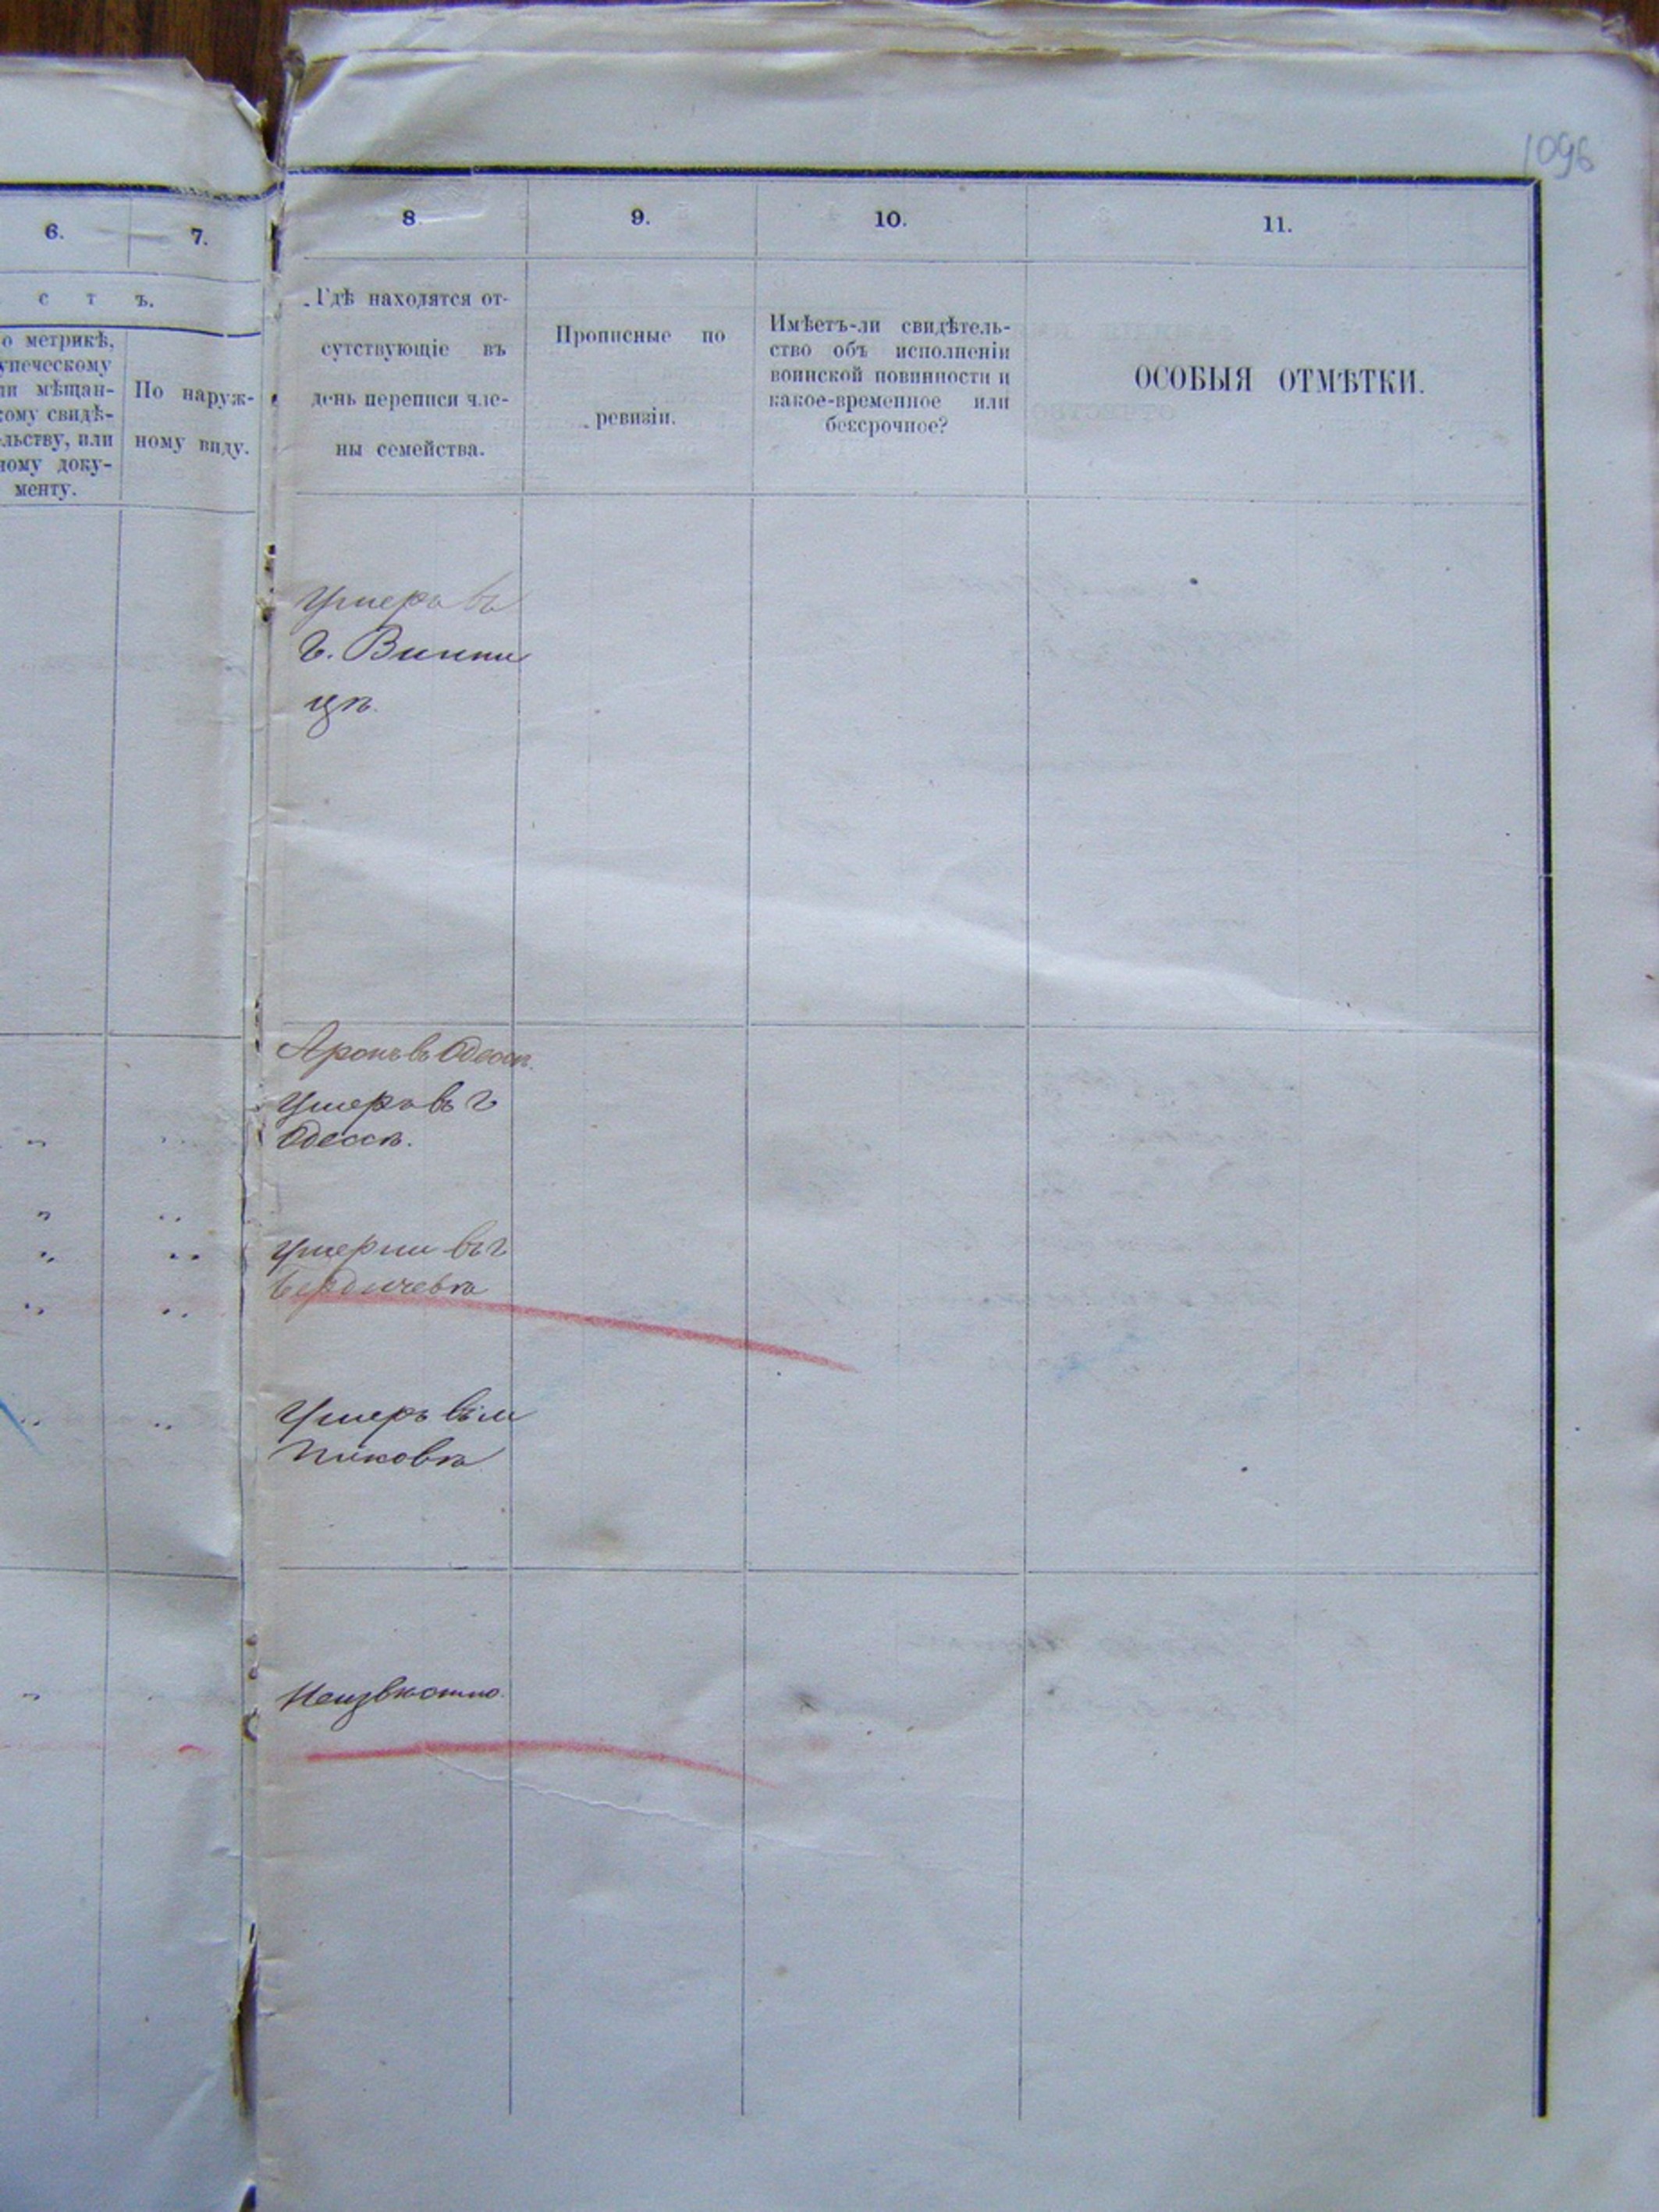 1096
6.
7.
с т ъ.
о метрикѣ,
упеческому
ли мѣщан-
кому свидѣ-
льству, или
ному доку-
менту.
По наруж-
ному виду.
8
9.
10.
11.
Гдѣ находятся от-
сутствующіе въ
день переписи чле-
ны семейства.
Прописные по
ревизіи.
Имѣетъ-ли свидѣтель-
ство объ исполненіи
воинской повинности и
какое-временное или
безсрочное?
ОСОБЫЯ ОТМѢТКИ.
Умеръ въ
г. Винни
цѣ.
Аронъ въ Одессѣ.
Умеръ въ г
Одессѣ.
Умерли въ г
Бердичевѣ
Умеръ въ м
Пиковѣ
Неизвѣстно.